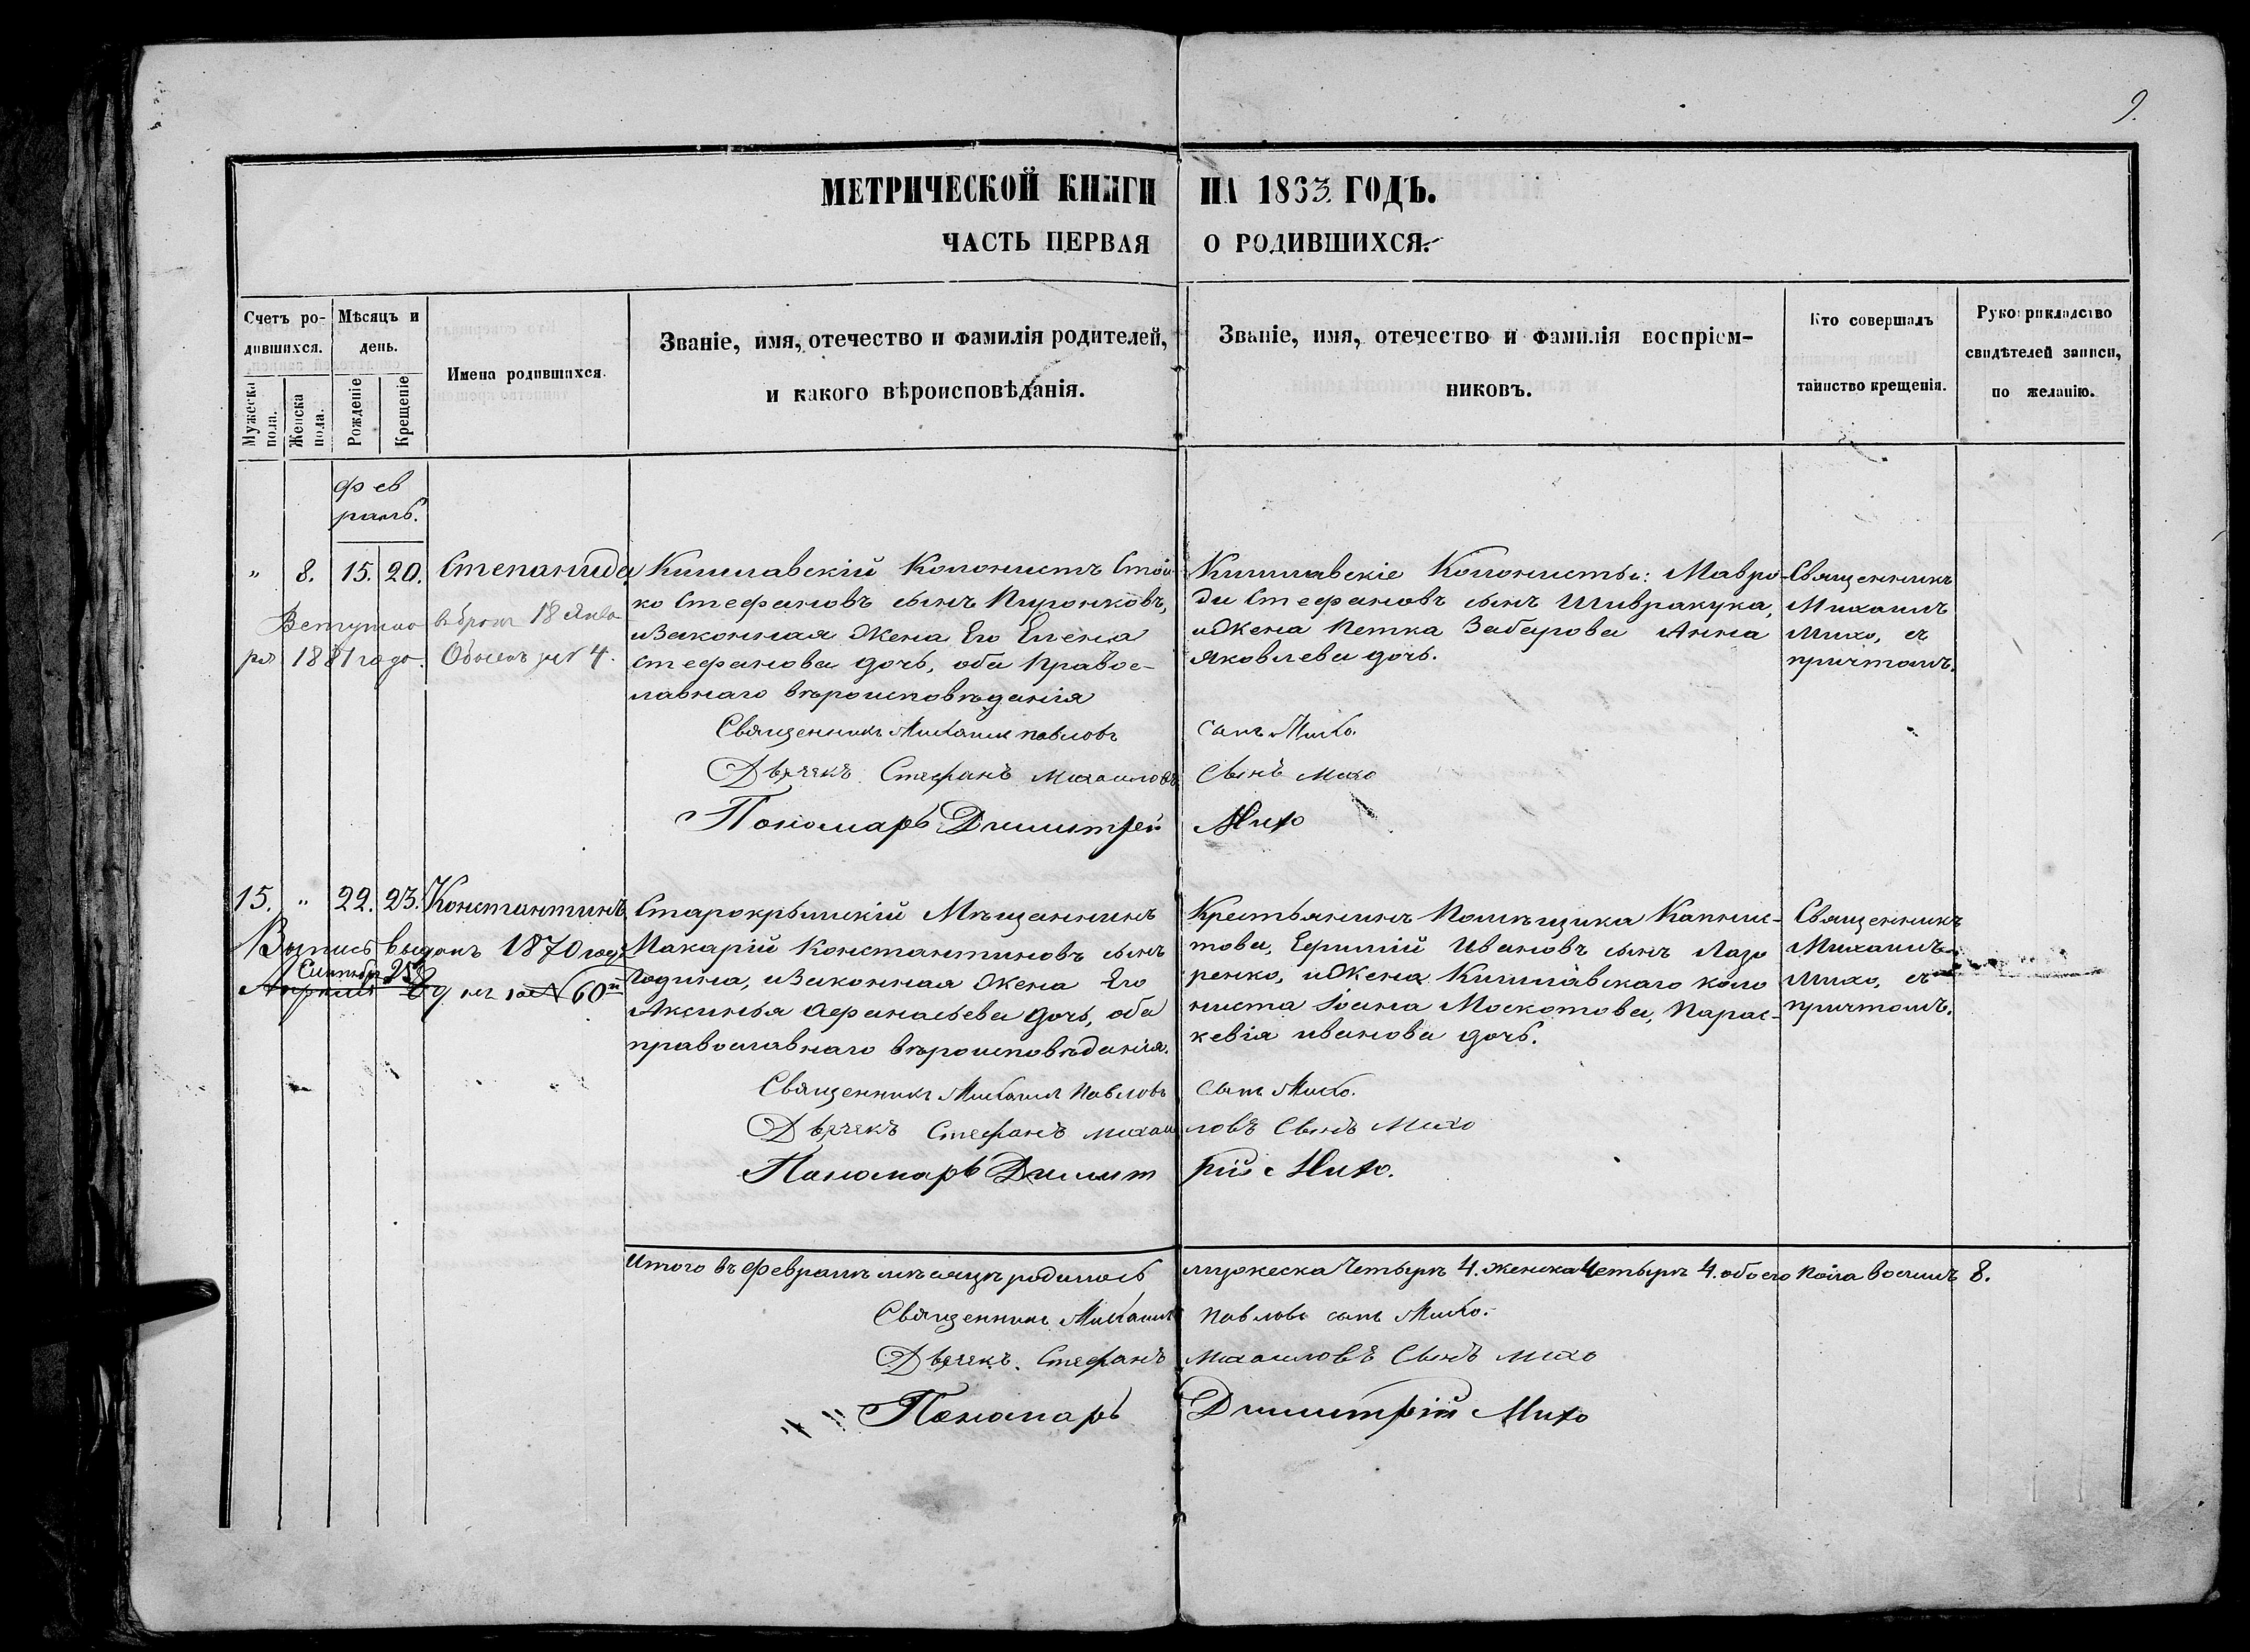 9.
МЕТРИЧЕСКОЙ КНИГИ НА 1863 ГОДЪ.
ЧАСТЬ ПЕРВАЯ О РОДИВШИХСЯ.
Счетъ родившихся.
Мужеска пола.
Женска пола.
Мѣсяцъ и день.
Рожденіе
Крещеніе
Имена родившихся.
Званіе, имя, отечество и фамилія родителей,
и какого вѣроисповѣданія.
Званіе, имя, отечество и фамилія воспріем-
никовъ.
Кто совершалъ
таинство крещенія.
Рукоприкладство
свидѣтелей записи,
по желанію.
Фев
раль.
" 8. 15. 20. Степанида
Вступила въ бракъ 18 Янва
ря 1881 года. Обыскъ № 4.
Кишлавскій Колонистъ Стой
ко Стефановъ сынъ Пуронковъ,
и Законная Жена Его Елена
Стефанова дочь, оба Правос-
лавнаго вѣроисповѣданія
Кишлавскіе Колонисты: Мавро-
ди Стефановъ сынъ Шивракука,
и Жена Петка Забарова Анна
Яковлева дочь.
Священникъ
Михаилъ
Михо, съ
причтомъ.
Священникъ Михаилъ Павловъ сынъ Михо.
Дьячекъ Стефанъ Михаиловъ Сынъ Михо
Пономарь Димитрей Михо
15. " 22. 23. Константинъ
Выпись выдана 1870 года
Сентября 25
Апрѣля 60
Старокрымскій Мѣщанинъ
Макарій Константиновъ сынъ
Година, и Законная Жена Его
Аксинья Афанасьева дочь, оба
православнаго вѣроисповѣданія.
Крестьянинъ Помѣщика Капнис-
това, Ефимій Ивановъ сынъ Лаза
ренко, и Жена Кишлавскаго коло
ниста Іоана Москотова, Парас-
кевія Иванова дочь.
Священникъ
Михаилъ
Михо, съ
причтомъ.
Священникъ Михаилъ Павловъ сынъ Михо.
Дьячекъ Стефанъ Михаиловъ Сынъ Михо
Пономарь Димитрій Михо.
Итого въ Февралѣ мѣсяцѣ родилось мужеска Четыре 4. женска Четыре 4. обоего пола восемь 8.
Священникъ Михаилъ Павловъ сынъ Михо.
Дьячекъ Стефанъ Михаиловъ Сынъ Михо
Пономарь Димитрій Михо